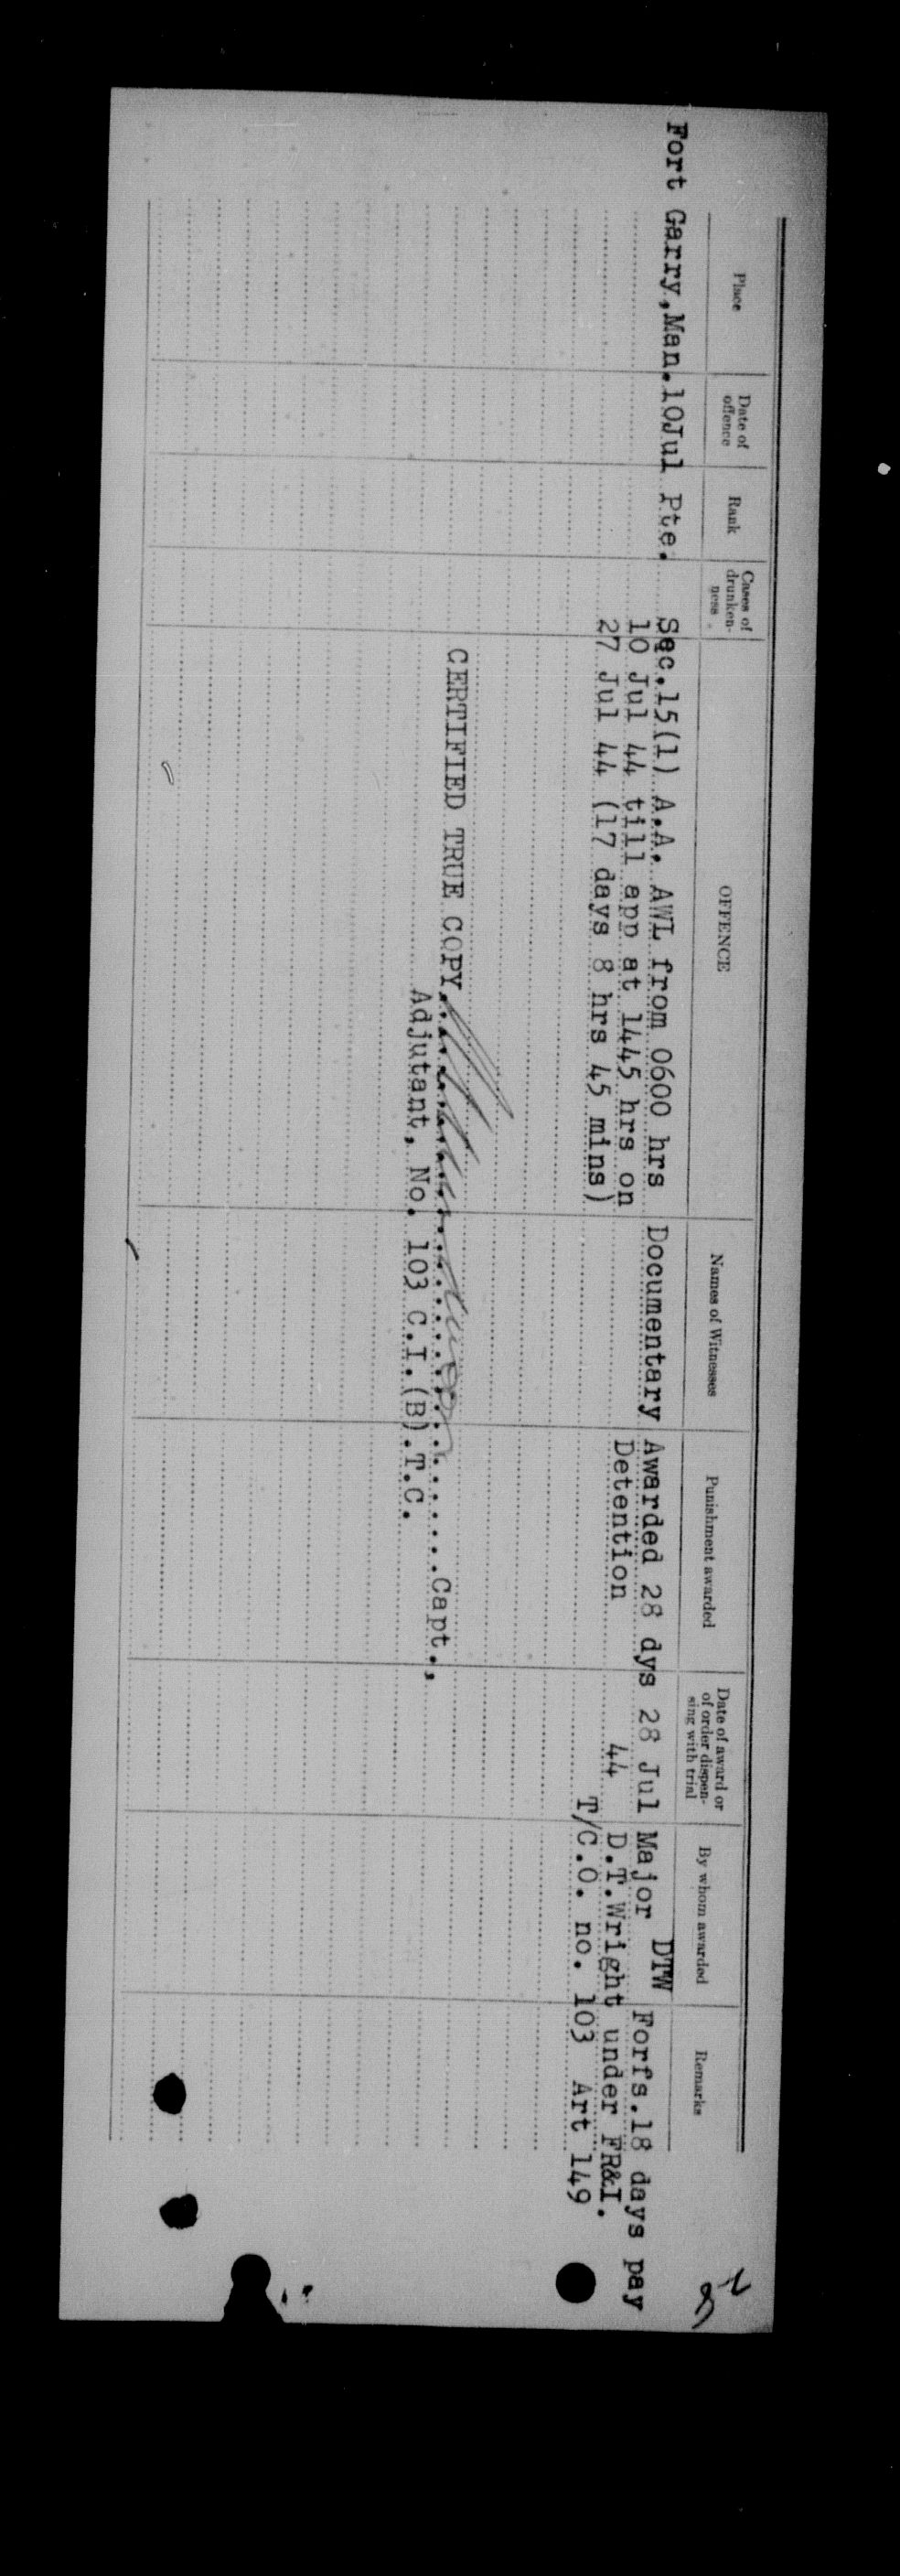 Place
Date of offence
Rank
Cases of drunken-ness
OFFENCE
Names of Witnesses
Punishment awarded
Date of award or of order dispen-sing with trial
By whom awarded
Remarks
Fort Garry,Man.10Jul Pte. Sec.15(1) A.A. AWL from 0600 hrs Documentary Awarded 28 dys 28 Jul Major DTW Forfs.18 days pay
10 Jul 44 till app at 1445 hrs on Detention 44 D.T.Wright under FR&I.
27 Jul 44 (17 days 8 hrs 45 mins) T/C.O. no. 103 Art 149
CERTIFIED TRUE COPY..........Capt.,
Adjutant, No. 103 C.I.(B).T.C.